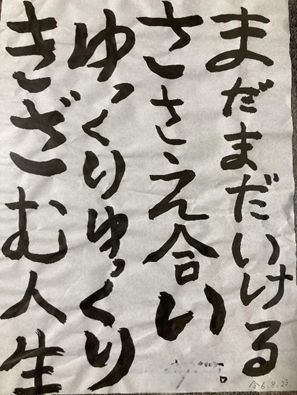 まだまだいける
ささえ合い
ゆっくりゆっくり
きざむ人生
令6.8.23